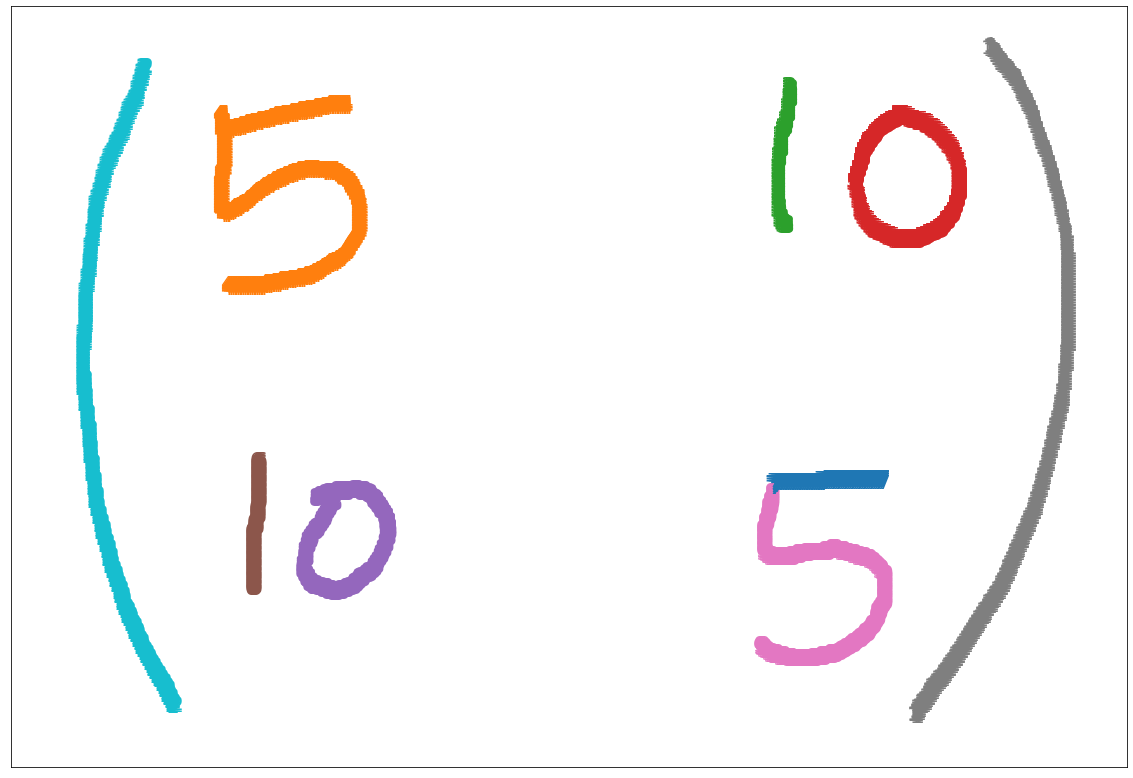 ( 5 10 )
( 10 5 )